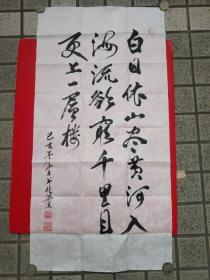 白日依山尽黄河入
海流欲穷千里目
更上一层楼
己亥年